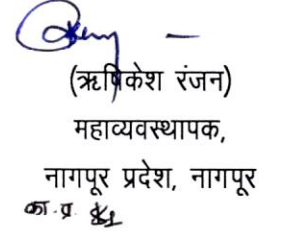 (ऋषिकेश रंजन)
महाव्यवस्थापक,
नागपूर प्रदेश, नागपूर
का.प्र.